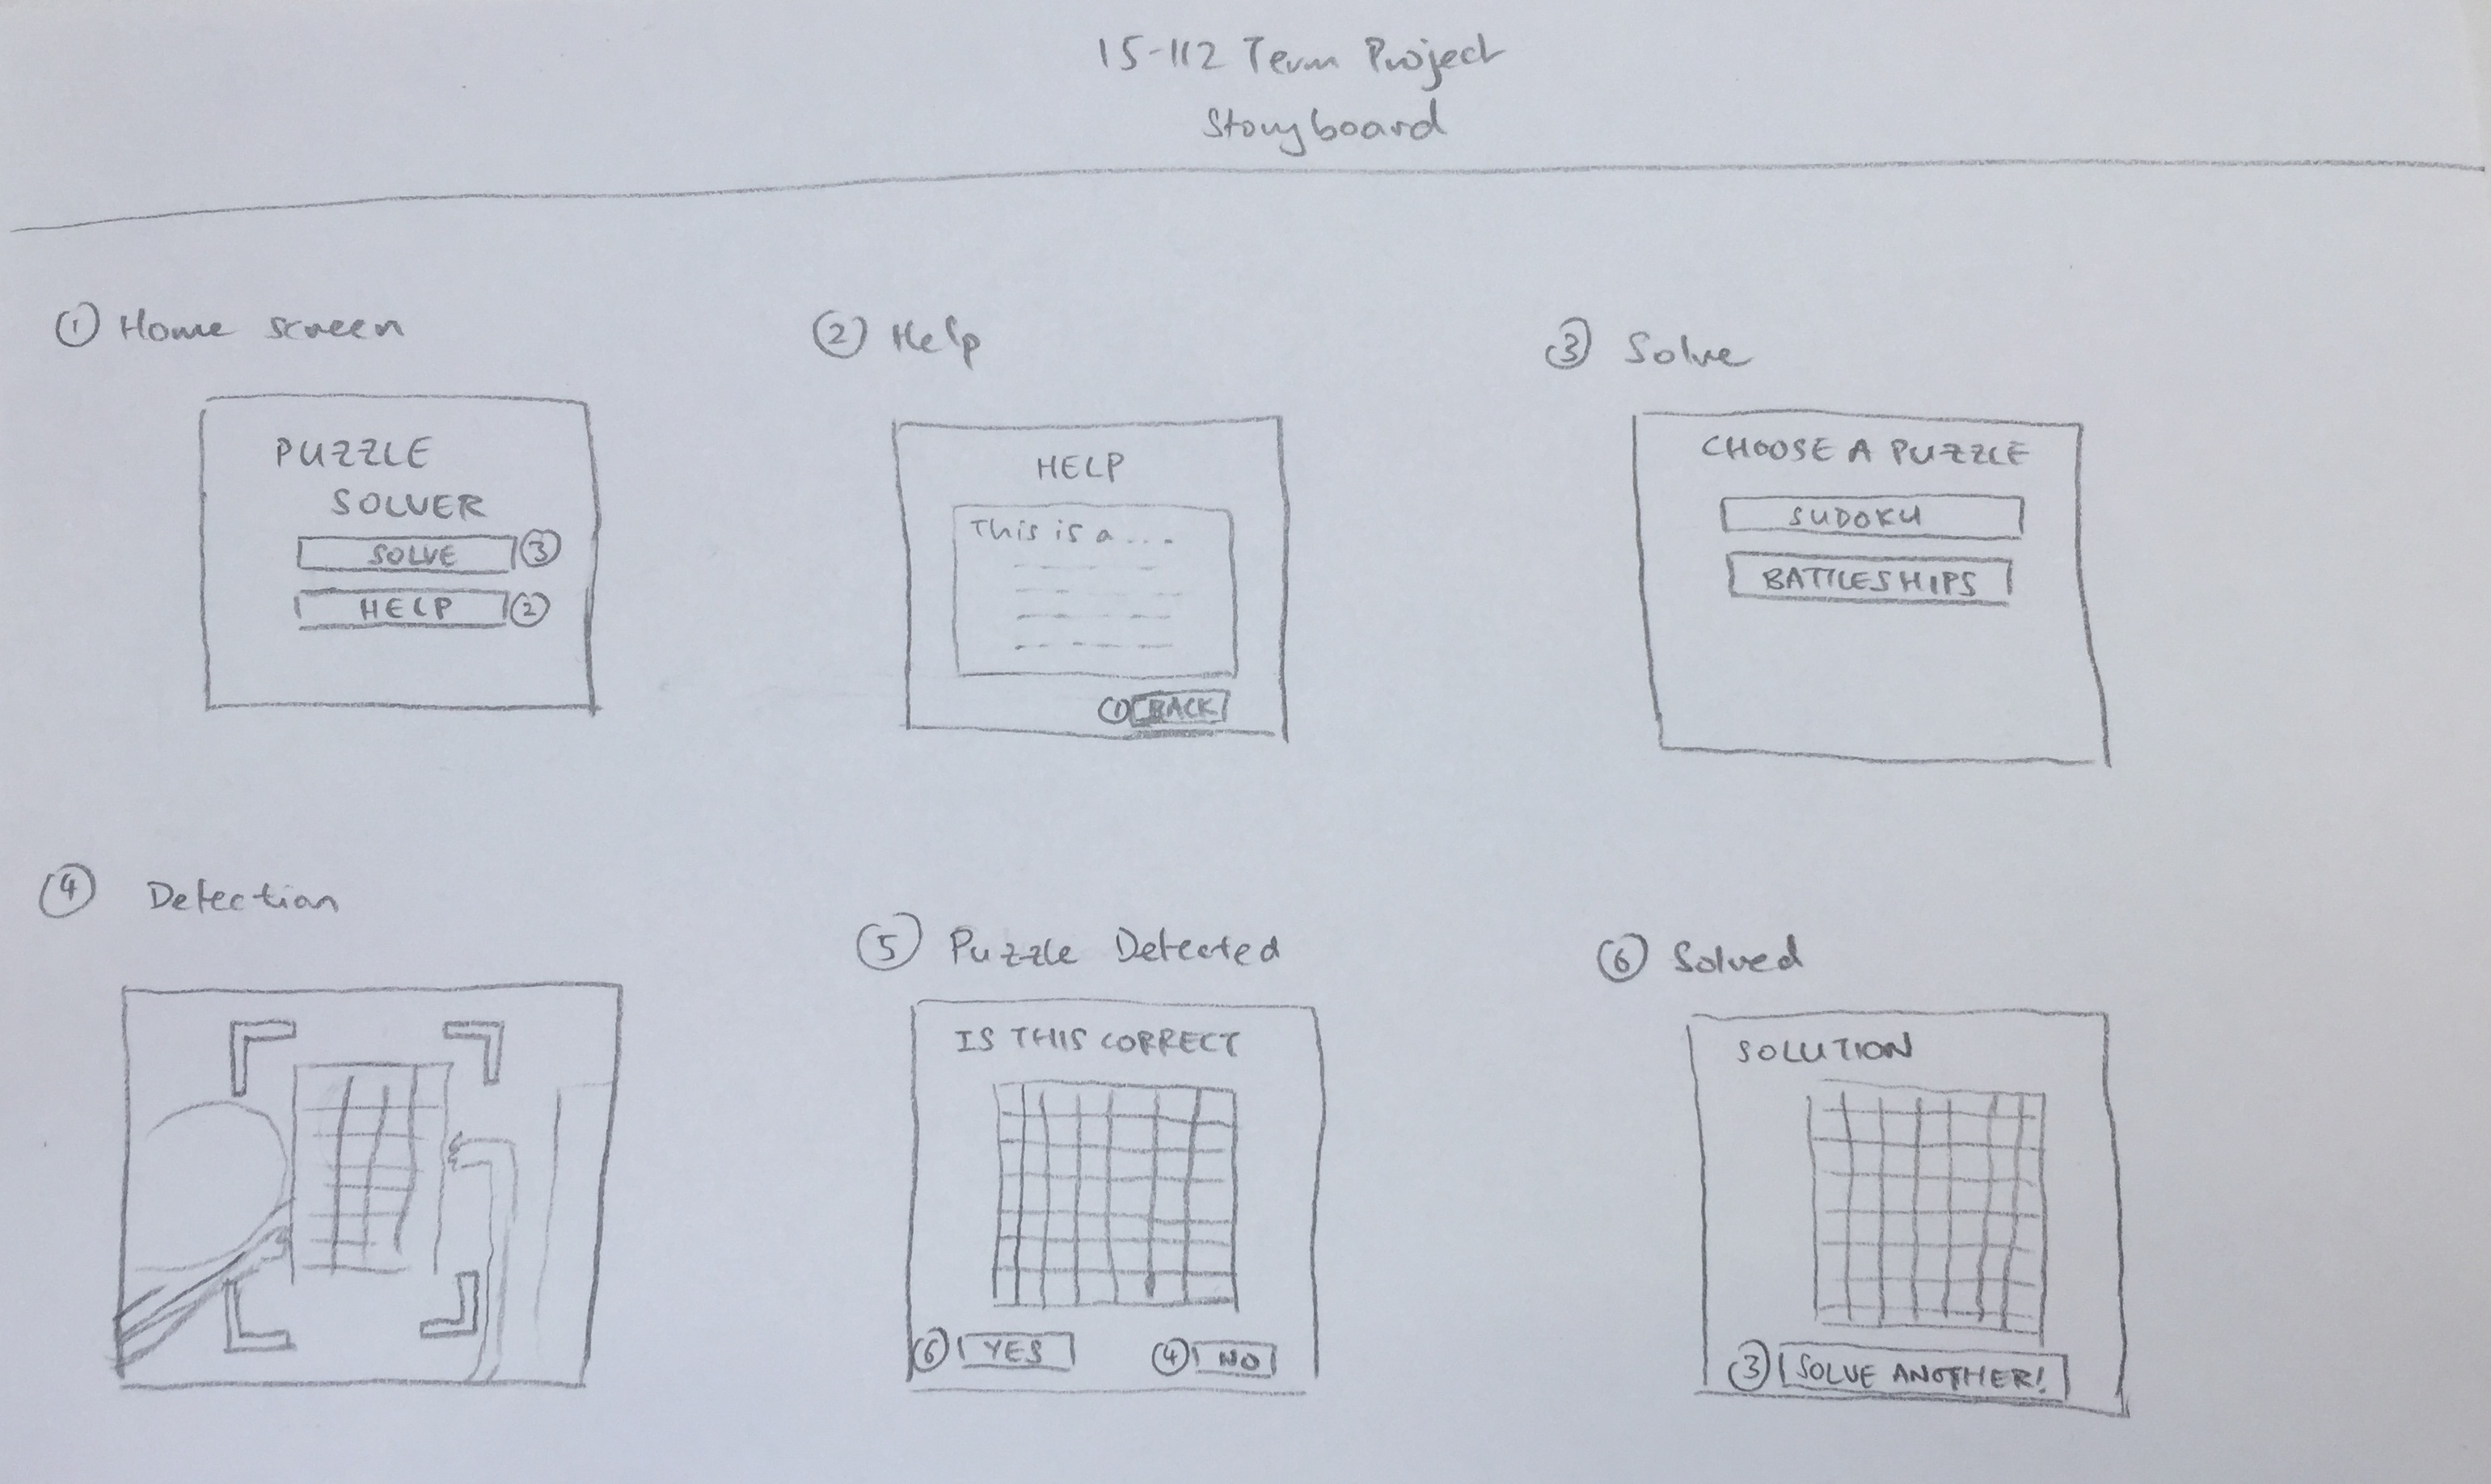 15-112 Term Project
Storyboard
① Home screen
PUZZLE
SOLVER
SOLVE ③
HELP ②
② Help
HELP
This is a ...
① BACK
③ Solve
CHOOSE A PUZZLE
SUDOKU
BATTLESHIPS
④ Detection
⑤ Puzzle Detected
IS THIS CORRECT
⑥ YES ④ NO
⑥ Solved
SOLUTION
③ SOLVE ANOTHER!